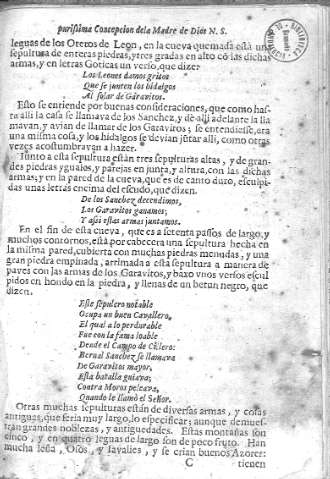 purissima Concepcion dela Madre de Dios N. S.
leguas de los Oteros de Leon, en la cueva quemada està una
sepultura de enteras piedras, y tres gradas en alto cõ las dichas
armas, y en letras Goticas un verso, que dize:
Los Leones damos gritos
Que se junten los hidalgos
Al solar de Garavitos.
Esto se entiende por buenas consideraciones, que como has-
ta alli la casa se llamava de los Sanchez, y de alli adelante la lla
mavan, y avian de llamar de los Garavitos; se entendiesse, era
una misma cosa, y los hidalgos se devian jûtar alli, como otras
vezes acostumbravan a hazer.
Iunto a esta sepultura estàn tres sepulturas altas, y de gran-
des piedras yguales, y parejas en junta, y altura, con las dichas
armas; y en la pared de la cueva, que es de canto duro, esculpi-
das unas letras encima del escudo, que dizen.
De los Sanchez decendimos,
Los Garavitos ganamos;
Y assi estas armas juntamos.
En el fin de esta cueva, que es a setenta passos de largo, y
muchos contornos, està por cabecera una sepultura hecha en
la misma pared, cubierta con muchas piedras menudas, y una
gran piedra empinada, arrimada a esta sepultura a manera de
paves con las armas de los Garavitos, y baxo unos versos escul
pidos en hondo en la piedra, y llenas de un betun negro, que
dizen.
Este sepulcro notable
Ocupa un buen Cavallero,
El qual a lo perdurable
Fue con la fama loable
Desde el Campo de
Bernal Sanchez se llamava
De Garavitos mayor,
Esta batalla guiava;
Contra Moros peleava,
Quando le llamò el Señor.
Otras muchas sepulturas estàn de diversas armas, y cosas
antiguas, que seria muy largo, lo especificar; aunque demues-
tran grandes noblezas, y antiguedades. Estas montañas son
cinco, y en quatro leguas de largo son de poco fruto. Han
mucha leña, Osos, y Iavalies, y se crian buenos Azores:
C tienen